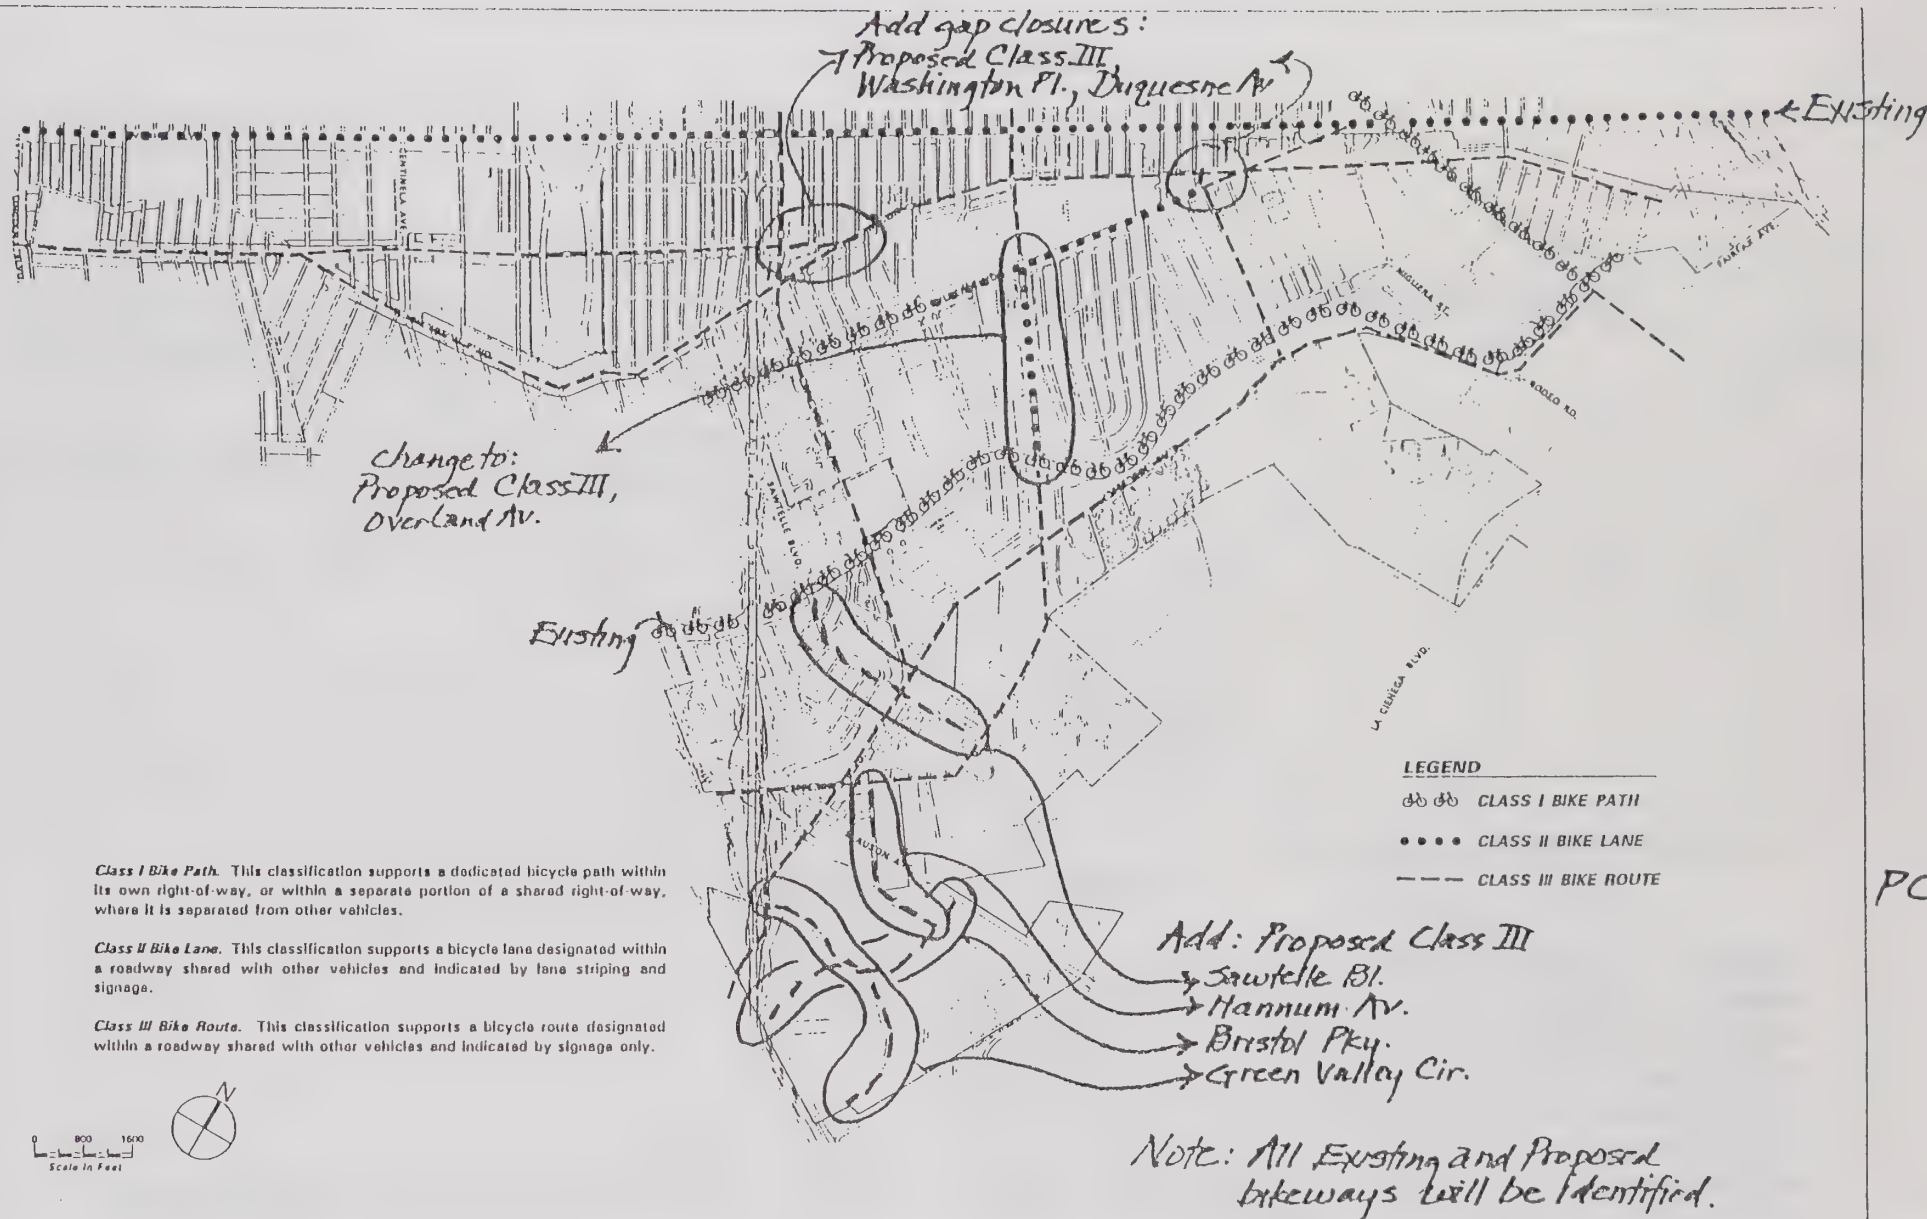 Add gap closures:
Proposed Class III,
Washington Pl., Duquesne Av
Existing
CENTINELA AVE.
FAIRFAX AVE.
HIGUERA ST.
RODEO RD.
change to:
Proposed Class III,
Overland Av.
SAWTELLE BLVD.
Existing
LA CIENEGA BLVD.
LEGEND
CLASS I BIKE PATH
CLASS II BIKE LANE
CLASS III BIKE ROUTE
PC
Class I Bike Path. This classification supports a dedicated bicycle path within
its own right-of-way, or within a separate portion of a shared right-of-way,
where it is separated from other vehicles.
Class II Bike Lane. This classification supports a bicycle lane designated within
a roadway shared with other vehicles and indicated by lane striping and
signage.
Class III Bike Route. This classification supports a bicycle route designated
within a roadway shared with other vehicles and indicated by signage only.
Add: Proposed Class III
Sawtelle Bl.
Hannum Av.
Bristol Pky.
Green Valley Cir.
N
0 800 1600
Scale in Feet
Note: All Existing and Proposed
bikeways will be identified.